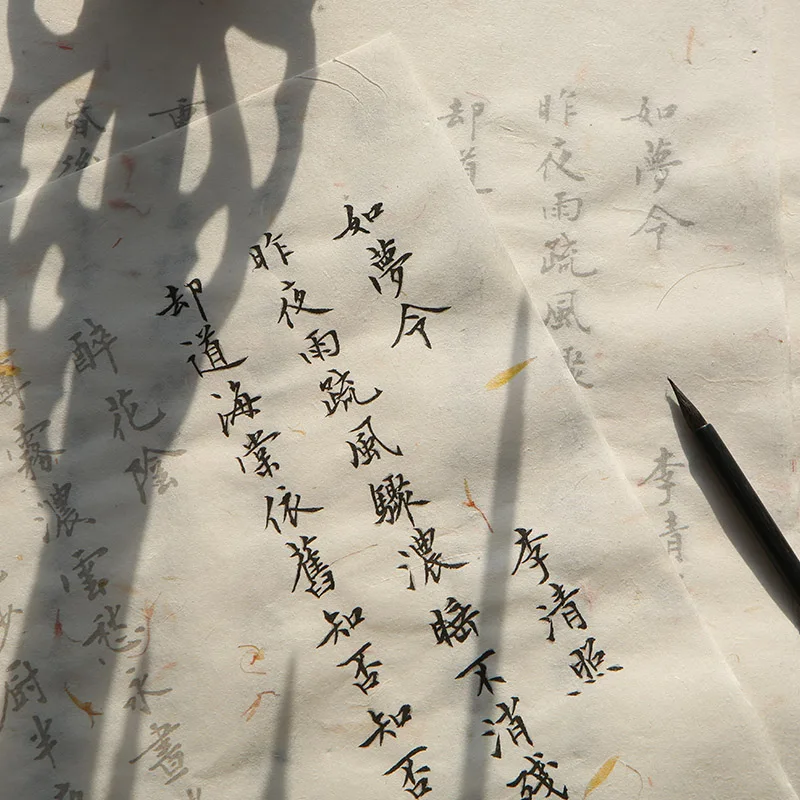 如夢令 李清照
昨夜雨疏風驟濃睡不消殘
却道海棠依舊知否知否
如夢令 李清
昨夜雨疏風驟
却道
重
昏後
醉花陰
薄霧濃雲愁永晝
厨半